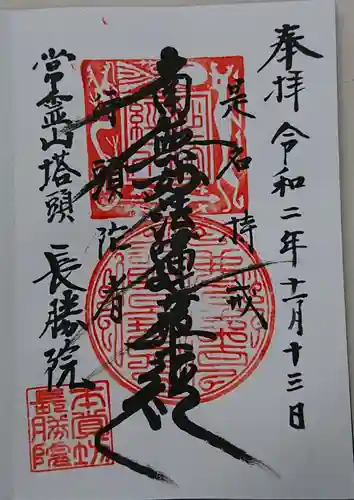 奉拝 令和二年十一月十三日
是名持戒
南無妙法蓮華経
行頭陀者
常霊山塔頭 長勝院